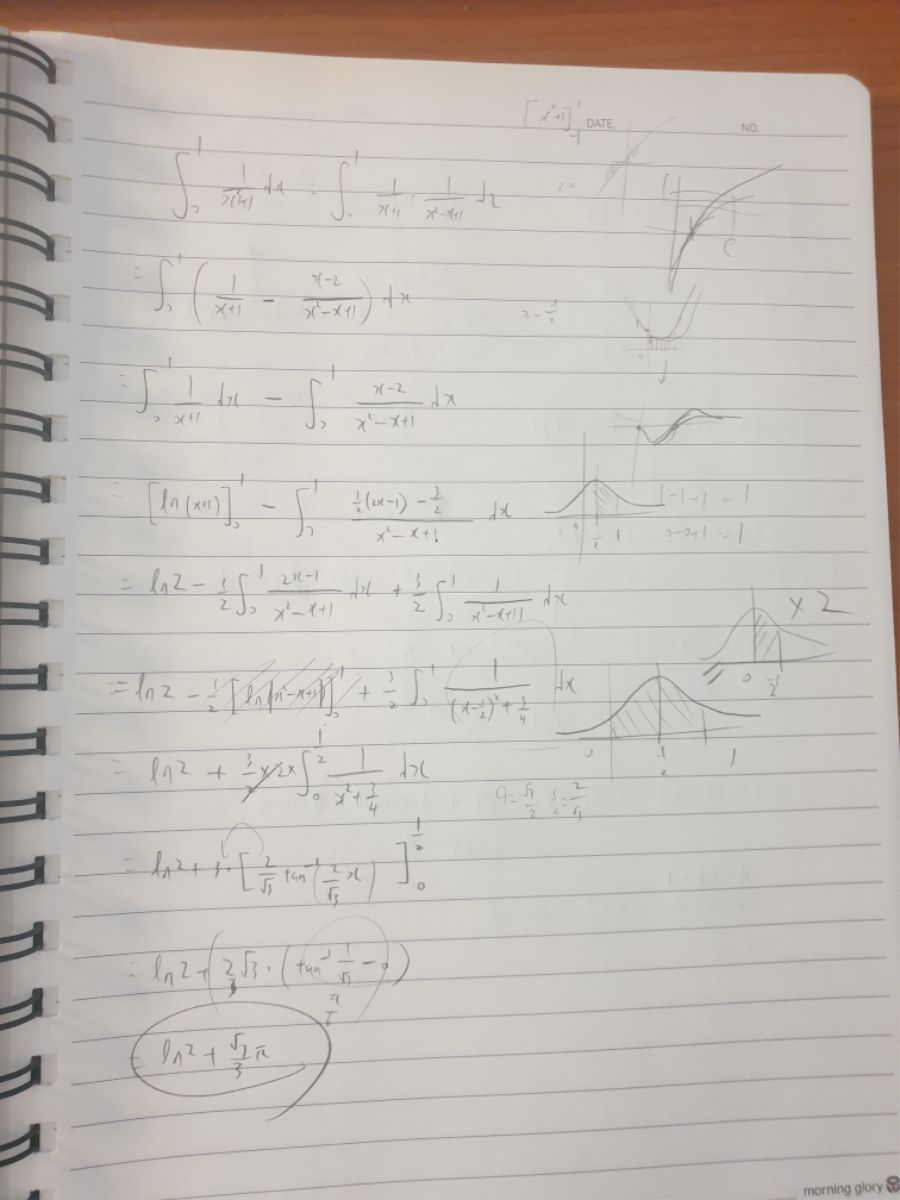 [x²+1]₋₁¹ DATE. NO.
∫₀¹ 1/(x³+1) dx = ∫₀¹ 1/(x+1) · 1/(x²-x+1) dx
= ∫₀¹ ( 1/(x+1) - (x-2)/(x²-x+1) ) dx
= ∫₀¹ 1/(x+1) dx - ∫₀¹ (x-2)/(x²-x+1) dx
= [ln(x+1)]₀¹ - ∫₀¹ (½(2x-1) - 3/2)/(x²-x+1) dx
1-1+1=1
0-0+1=1
= ln2 - ½∫₀¹ (2x-1)/(x²-x+1) dx + 3/2 ∫₀¹ 1/(x²-x+1) dx
×2
= ln2 - ½ [ln|x²-x+1|]₀¹ + 3/2 ∫₀¹ 1/((x-½)²+¾) dx
= ln2 + 3/2 × 2 × ∫₀^½ 1/(x²+¾) dx
a=√3/2 1/a=2/√3
= ln2 + 3·[ 2/√3 tan⁻¹(2/√3 x) ]₀^½
= ln2 + 2√3 · (tan⁻¹ 1/√3 - 0)
π/6
= ln2 + √3/3 π
morning glory